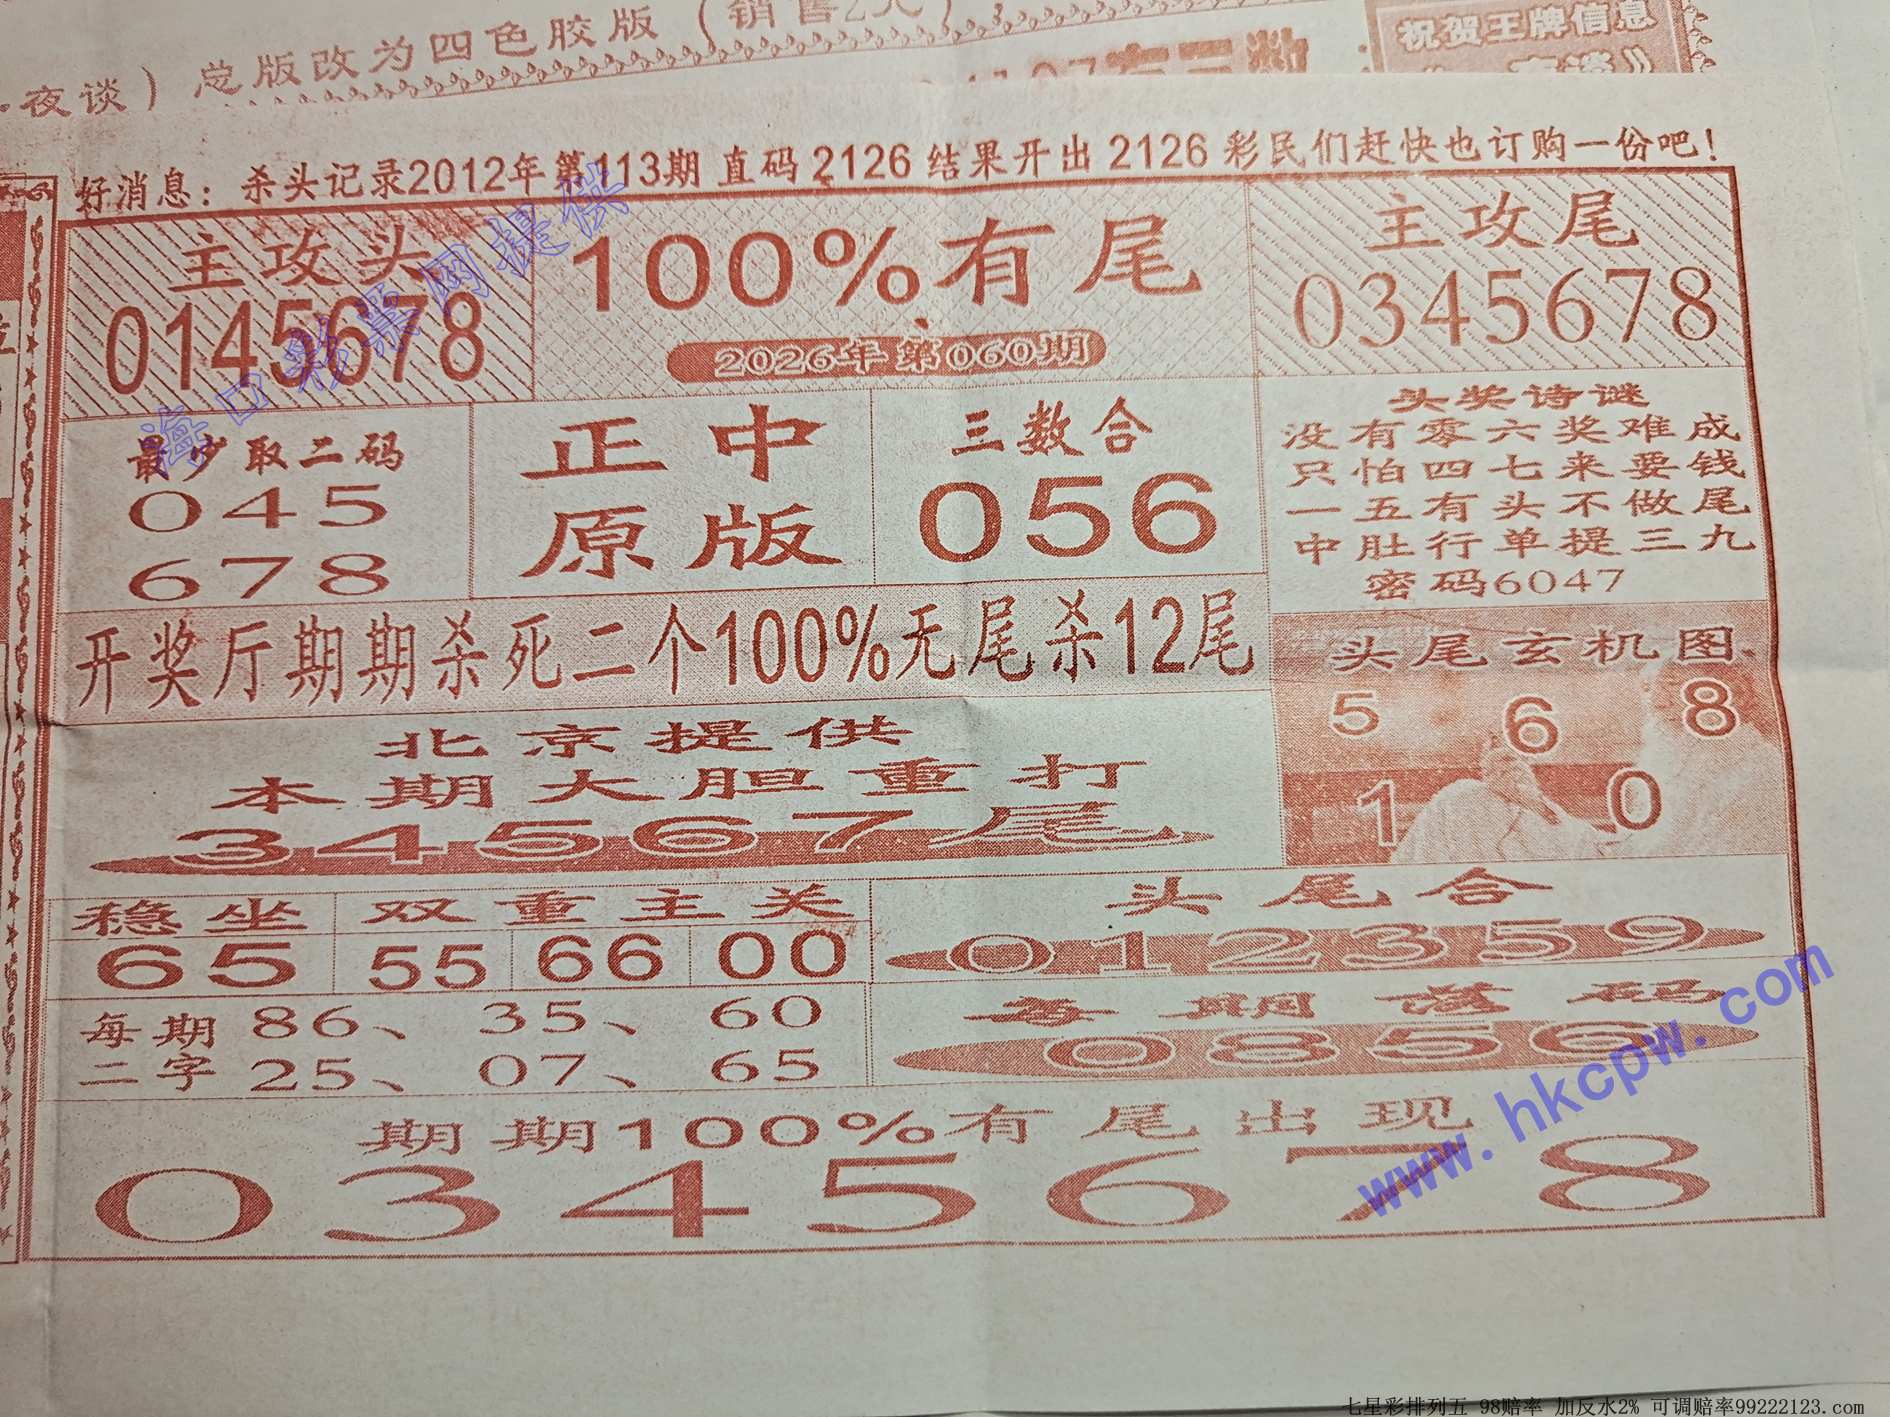 夜谈）总版改为四色胶版（销售2元）
祝贺王牌信息
好消息：杀头记录2012年第113期 直码 2126 结果开出 2126 彩民们赶快也订购一份吧！
主攻头
0145678
100%有尾
2026年第060期
主攻尾
0345678
海口彩票网提供
最少取二码
045
678
正中
原版
三数合
056
头奖诗谜
没有零六奖难成
只怕四七来要钱
一五有头不做尾
中肚行单提三九
密码6047
开奖厅期期杀死二个100%无尾杀12尾
头尾玄机图
5 6 8
1 0
北京提供
本期大胆重打
34567尾
稳坐
65
双重主关
55 66 00
头尾合
012359
每期 86、 35、 60
二字 25、 07、 65
每期稳码
0856
期期100%有尾出现
0345678
www.hkcpw.com
七星彩排列五 98赔率 加反水2% 可调赔率99222123.com